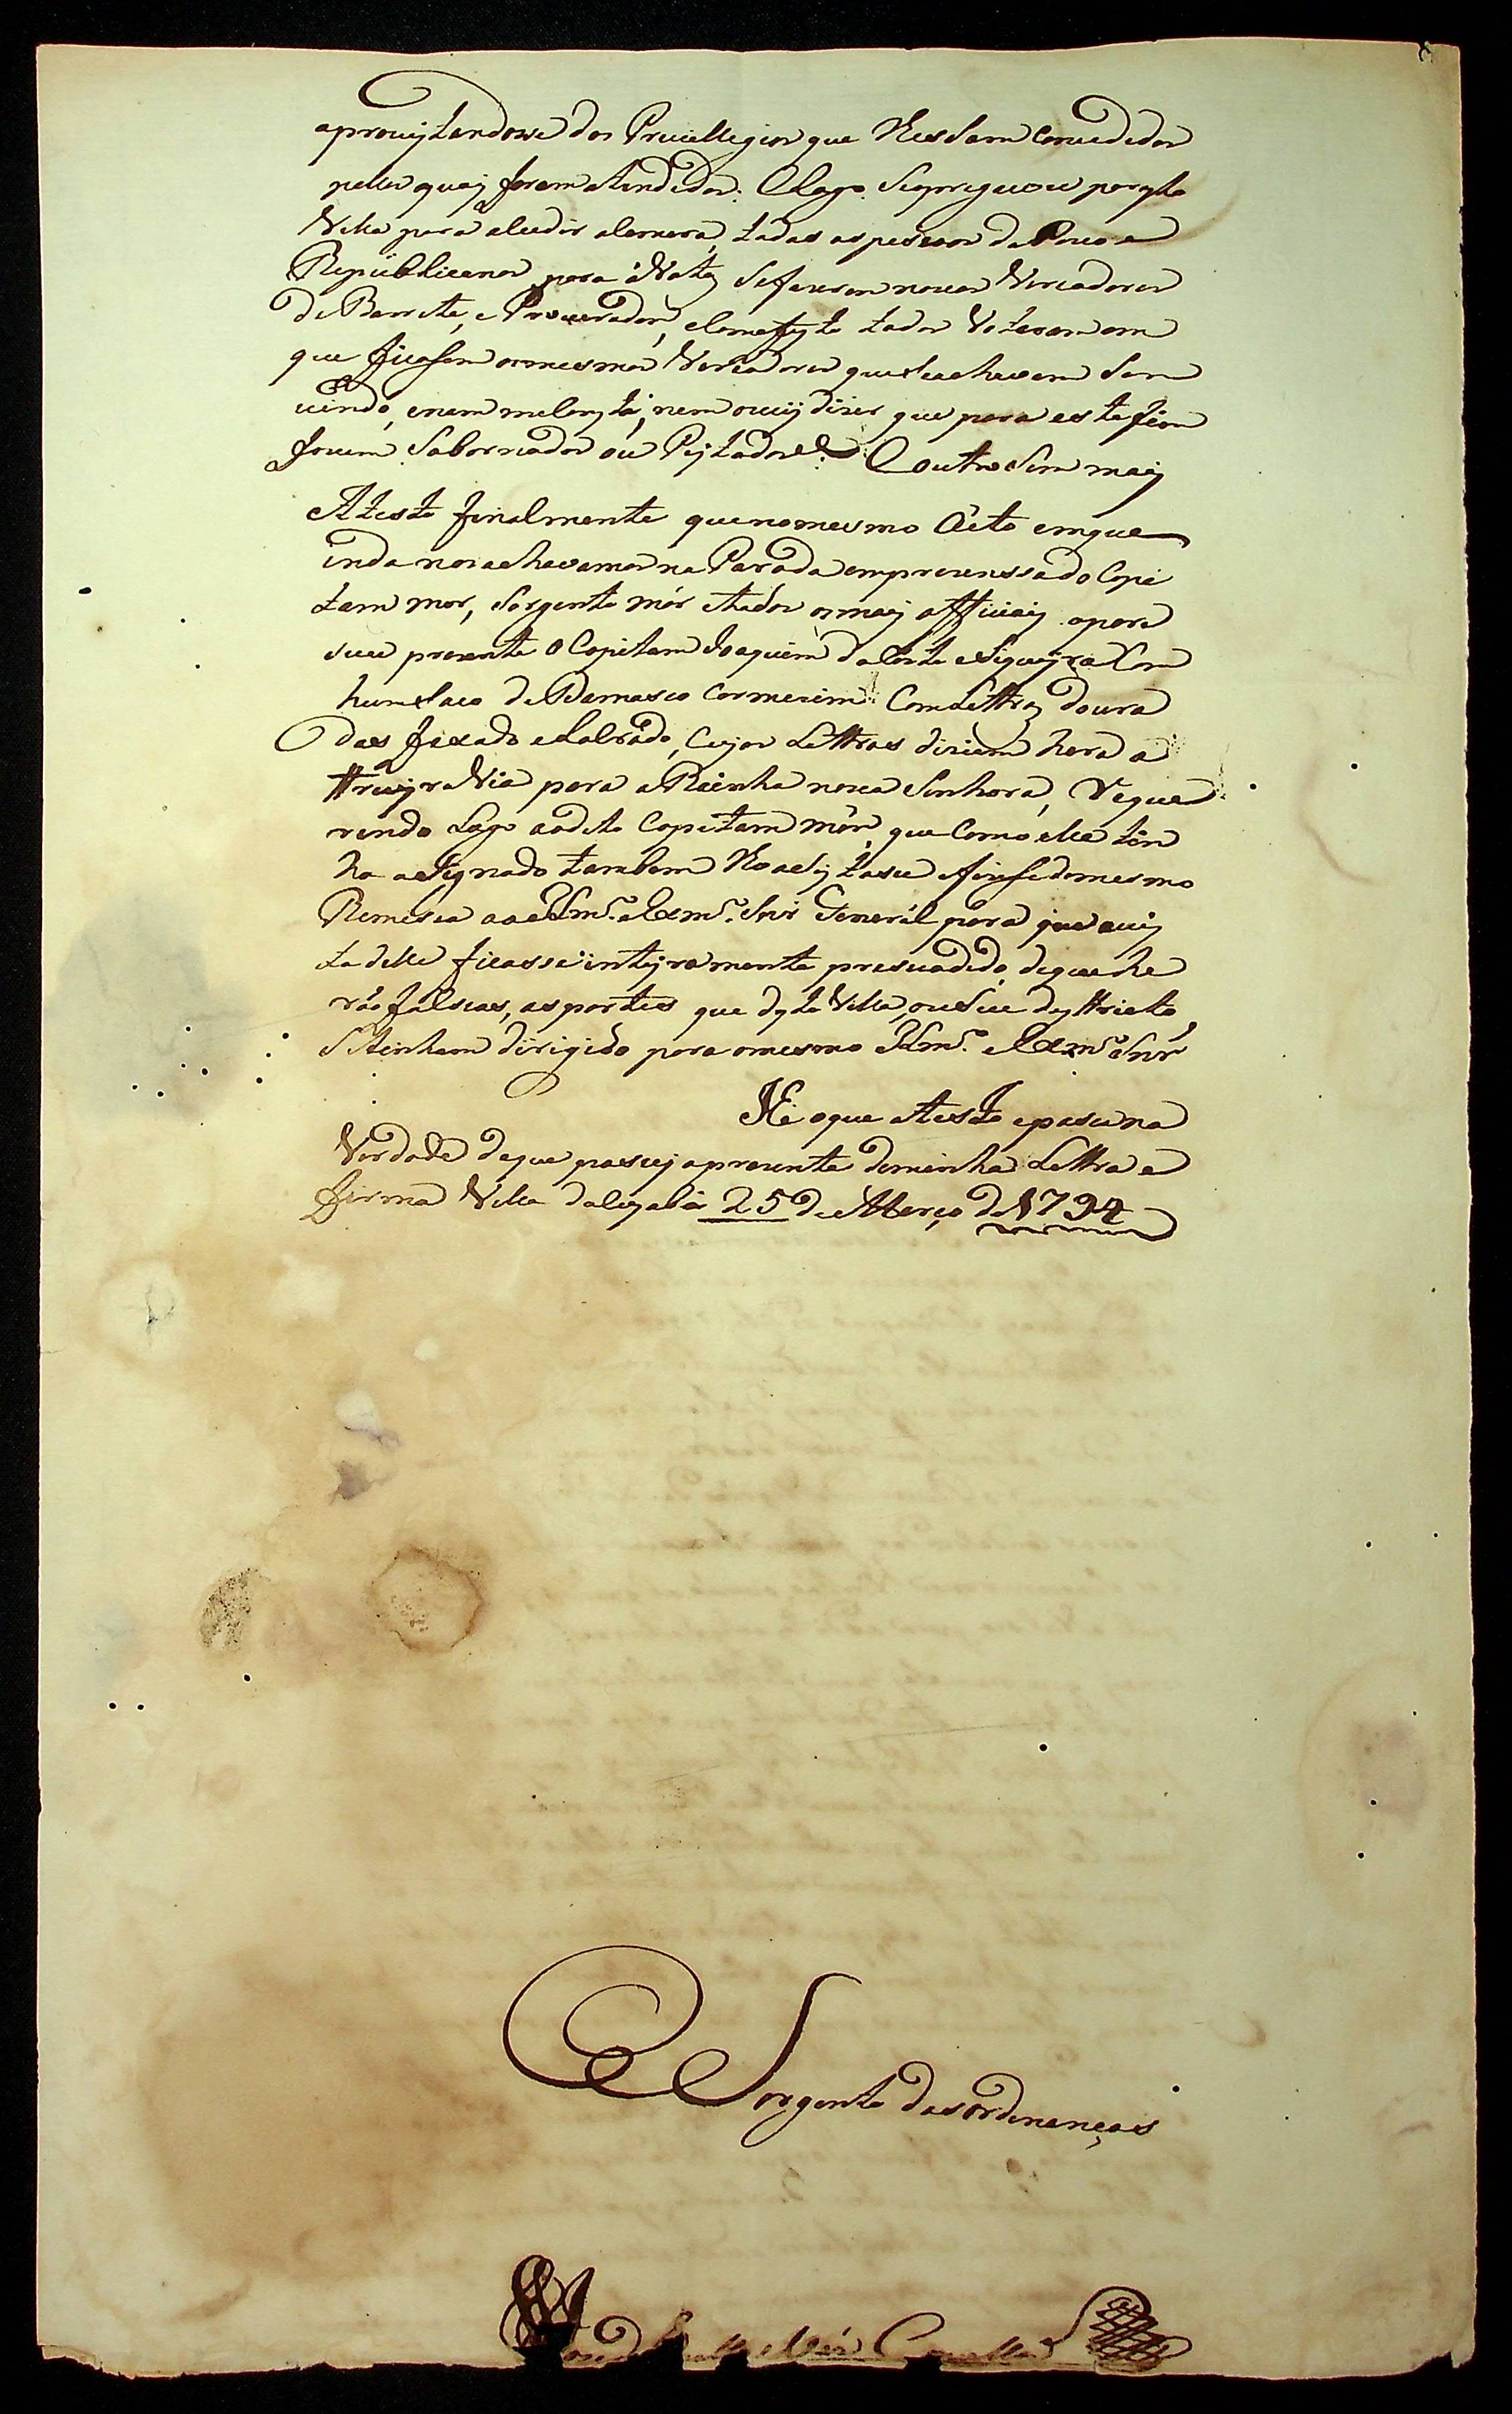 aproveijtandose dos Previllegios que lhes sam Concedidos
pellos quaij foram atendidos. E logo Sepregoou por esta
Villa para aludir a Camera, todas as pesoas do Povo e
Repüblicanos para a Votos sefazerem novos Vereadores
de Barrete, e Procurador, e Com efeyto todos Votaram em
que ficasem os mesmos Vereadores que se achavam Ser
uindo, e nem me Consta, nem ouuij dizer que para este fim
foram Sobornados ou Pejtados E outro Sim maij
Atesto finalmente que no mesmo Acto em que
inda nos achavamos na Parada em prezenssa do Capi
tam mor, Sargento mór e todos os maij officiaij apare
ceu prezente o Capitam Joaquim da Costa e Siqueyra Com
hum Saco de Damasco Carmezim Com Lettras doura
das fexado e Lacrado, Cujas Lettras diziam hera a
trceyra Via para a Rainha nosa Senhora, Reque
rendo Logo ao dito Capitam mór, que Como elle tin
ha asignado tambem lho aseijtasse e fizesse do mesmo
Remessa ao Illmº e Exmº Snr General para que auij
ta delle ficasse inteyramente presuadido, de que he
rão falsas, as partes que desta Villa, ou seu destricto
Se tinham dirigido para o mesmo Illmº e Exmº Snr
He o que Atesto e pasa na
Verdade de que pasey a prezente de minha Lettra e
firma Villa do Cuyabá 25 de Março de 1794
Sargento das ordenanças